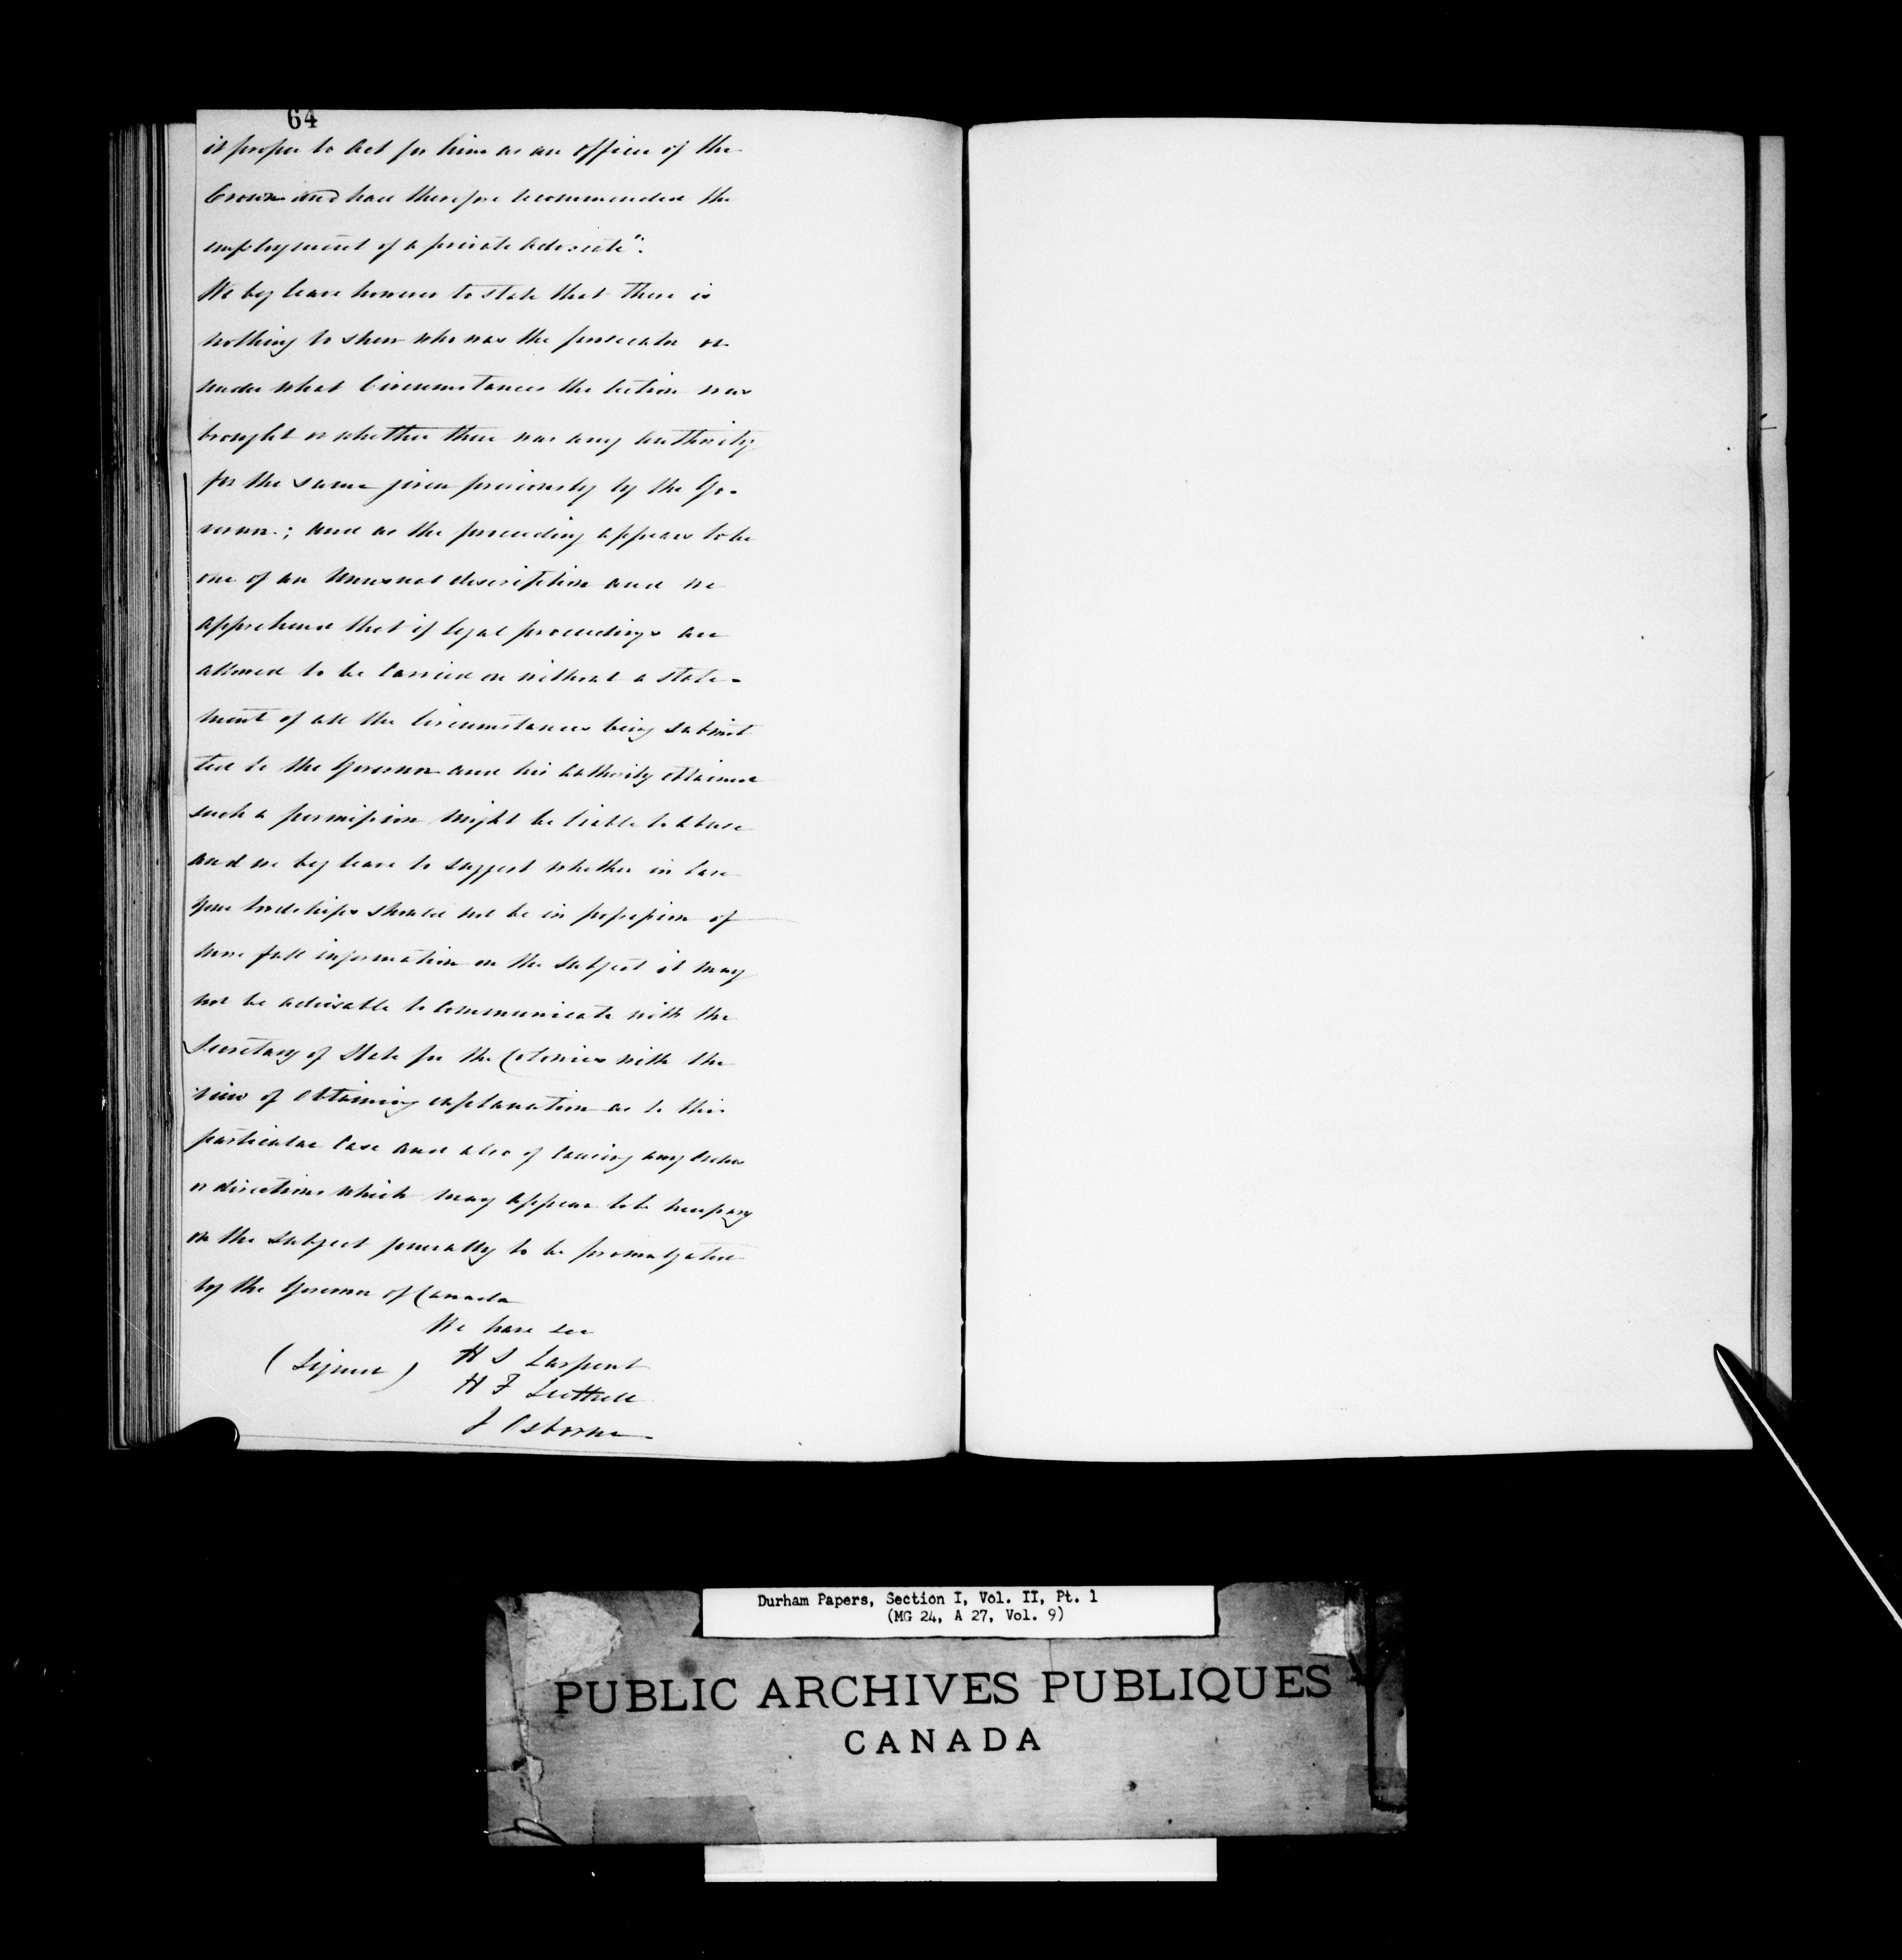 64
it proper to act for him as an officer of the
Crown and have therefore recommended the
employment of a private advocate".
We beg leave however to state that there is
nothing to shew who was the prosecutor or
under what Circumstances the Action was
brought or whether there was any authority
for the same given previously by the Go-
vernor; and as the proceeding appears to be
one of an unusual description and we
apprehend that if legal proceedings are
allowed to be carried on without a state-
ment of all the circumstances being submit
ted to the Governor and his authority obtained
such a permission might be liable to abuse
and we beg leave to suggest whether in case
your Lordships should not be in possession of
more full information on the subject it may
not be advisable to communicate with the
Secretary of State for the Colonies with the
view of obtaining explanation as to this
particular case and also of causing any orders
or directions which may appear to be necessary
on the subject generally to be promulgated
by the Governor of Canada
We have &c
(Signed) H S Larpent
H F Luttrell
J Osborne
Durham Papers, Section I, Vol. II, Pt. 1
(MG 24, A 27, Vol. 9)
PUBLIC ARCHIVES PUBLIQUES
CANADA